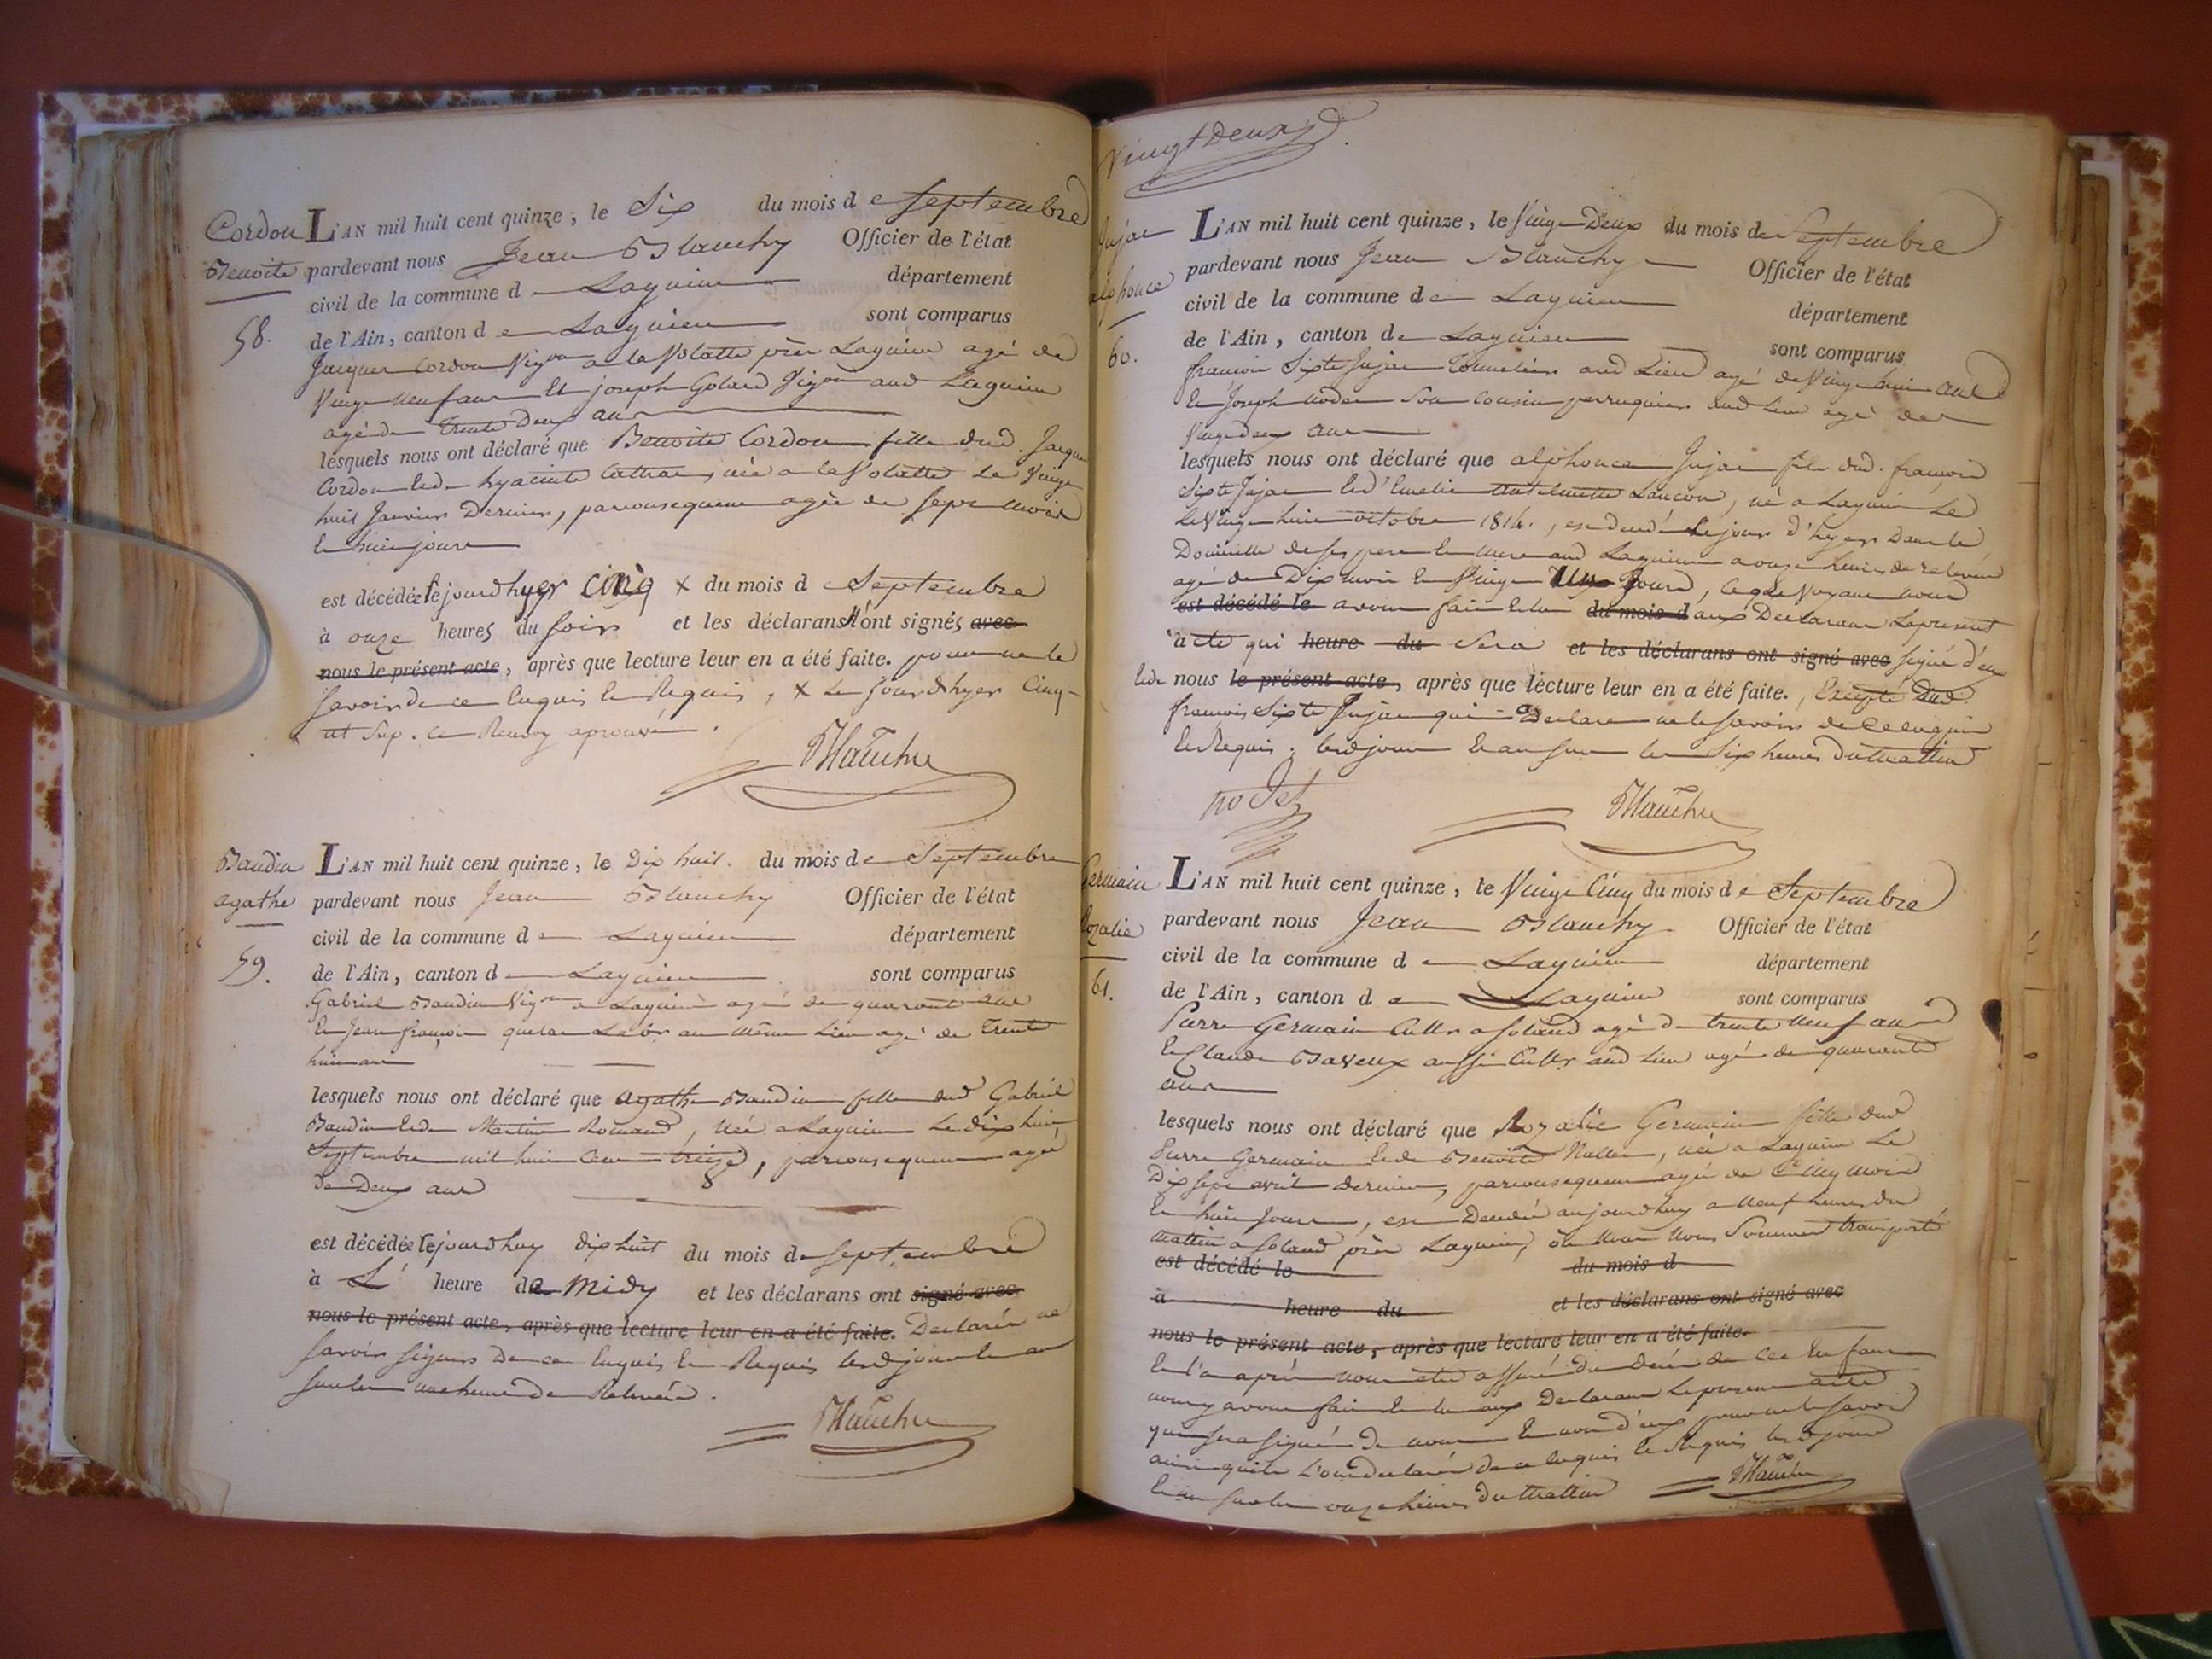 Cordon
Benoite
58.
L'AN mil huit cent quinze, le Six du mois de Septembre
pardevant nous Jean Blanchy Officier de l'état
civil de la commune de Lagnieu département
de l'Ain, canton de Lagnieu sont comparus
Jacques Cordon Vigon a la Volatte près Lagnieu agé de
Vingt neuf ans Et joseph Golard Vigon aud Lagnieu
agé de Trente Deux ans
lesquels nous ont déclaré que Benoite Cordon fille dud. Jacques
Cordon Et de hyacinte, née a la Volatte Le Vingt
huit Janvier Dernier, parconsequent agée de Sept mois
Et huit jours
est décédée le jourd'hyer cinq x du mois de Septembre
à onze heures du soir et les déclarans n'ont signés avec
nous le présent acte, après que lecture leur en a été faite. pour ne le
savoir de ce Enquis Et Requis, x Le jourd'hyer Cinq
ut Sup. ce Renvoy aprouvé.
Blanchy
Baudin
agathe
59.
L'AN mil huit cent quinze, le Dix huit. du mois de Septembre
pardevant nous Jean Blanchy Officier de l'état
civil de la commune de Lagnieu département
de l'Ain, canton de Lagnieu sont comparus
Gabriel Baudin Vigon a Lagnieu agé de quarante ans
Et Jean françois au même Lieu agé de Trente
huit ans
lesquels nous ont déclaré que agathe Baudin fille dud Gabriel
Baudin Et de Martine Romand, née a Lagnieu Le dix huit
Septembre mil huit Cent treize, parconsequent agée
de Deux ans
est décédée le jourd'huy dix huit du mois de Septembre
à L' heure de Midy et les déclarans ont signé avec
nous le présent acte, après que lecture leur en a été faite. Declaré ne
savoir signer De ce Enquis Et Requis lesd jour Et an
sur les une heure de Relevée.
Blanchy
Vingt Deux
Jujat
alphonce
60.
L'AN mil huit cent quinze, le Vingt Deux du mois de Septembre
pardevant nous Jean Blanchy Officier de l'état
civil de la commune de Lagnieu département
de l'Ain, canton de Lagnieu sont comparus
françois Sixte Jujat Tonnelier aud Lieu agé de Vingt huit ans
Et Joseph nodet Son Cousin perruquier aud Lieu agé de
Vingt deux ans
lesquels nous ont déclaré que alphonce Jujat fils dud. françois
Sixte Jujat Et d'Emelie antelmette Lancon, né a Lagnieu Le
Le Vingt huit octobre 1814., est decedé Le jour d'hyer Dans le
Domicille de ses pere Et mere aud Lagnieu a onze heures de relevée
agé de Dix mois Et Vingt Jours, Ce que Voyant nous
est décédé le avons fait Et lu du mois d aux Declarans Le present
à cte qui heure du Sera et les déclarans ont signé avec signé d'eux
Et de nous le présent acte, après que lecture leur en a été faite., Excepté dud
françois Sixte Jujat qui a Declaré ne le savoir de Ce enquis
Et Requis. lesd jour Et an sur les Six heures du mattin
nodet
Blanchy
Germain
Rozalie
61.
L'AN mil huit cent quinze, le Vingt Cinq du mois de Septembre
pardevant nous Jean Blanchy Officier de l'état
civil de la commune de Lagnieu département
de l'Ain, canton de Lagnieu sont comparus
Pierre Germain Cultr a Solaud agé de trente neuf ans
Et Claude Baveux aussi Cultr aud Lieu agé de quarante
ans
lesquels nous ont déclaré que Rozalie Germain fille dud
Pierre Germain Et de Benoite, née a Lagnieu Le
Dix sept avril dernier, parconsequent agée de Cinq mois
Et huit Jours, est Decedée aujourd'huy a neuf heures du
mattin a Solaud près Lagnieu, ou Nous Nous Sommes transporté
est décédé le du mois d
à heure du et les déclarans ont signé avec
nous le présent acte, après que lecture leur en a été faite.
Et la après nous être assuré du decés de Cet Enfant
nous y avons fait Et lu aux Declarans Le present acte
qui sera signé de nous Et non d'eux pour ne le savoir
ainsi qu'ils L'ont declaré de ce Enquis Et Requis lesd jour
Et an sur les onze heures du Mattin
Blanchy